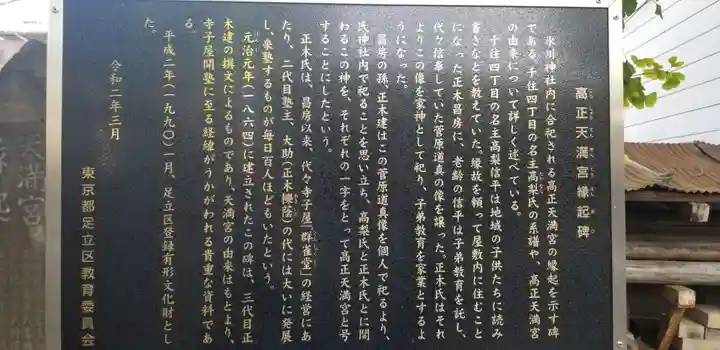 高正天満宮縁起碑
氷川神社内に合祀される高正天満宮の縁起を示す碑
である。千住四丁目の名主高梨氏の系譜や、高正天満宮
の由来について詳しく述べている。
千住四丁目の名主高梨信平は地域の子供たちに読み
書きなどを教えていた。縁故を頼って屋敷内に住むこと
になった正木昌房に、老齢の信平は子弟教育を託し、
代々信奉していた菅原道真の像を譲った。正木氏はそれ
よりこの像を家神として祀り、子弟教育を家業とするよ
うになった。
昌房の孫、正木建はこの菅原道真像を個人で祀るより、
氏神社内で祀ることを思い立ち、高梨氏と正木氏とに関
わるこの神を、それぞれの一字をとって高正天満宮と号
することにしたという。
正木氏は、昌房以来、代々寺子屋「群雀堂」の経営にあ
たり、二代目塾主、大助(正木陰)の代には大いに発展
し、来塾するものが毎日百人ほどもいたという。
元治元年(一八六四)に建立されたこの碑は、三代目正
木建の撰文によるものであり、天満宮の由来はもとより、
寺子屋開塾に至る経緯がうかがわれる貴重な資料であ
る。
平成二年(一九九〇)一月、足立区登録有形文化財とし
た。
令和二年三月
東京都足立区教育委員会
天満宮